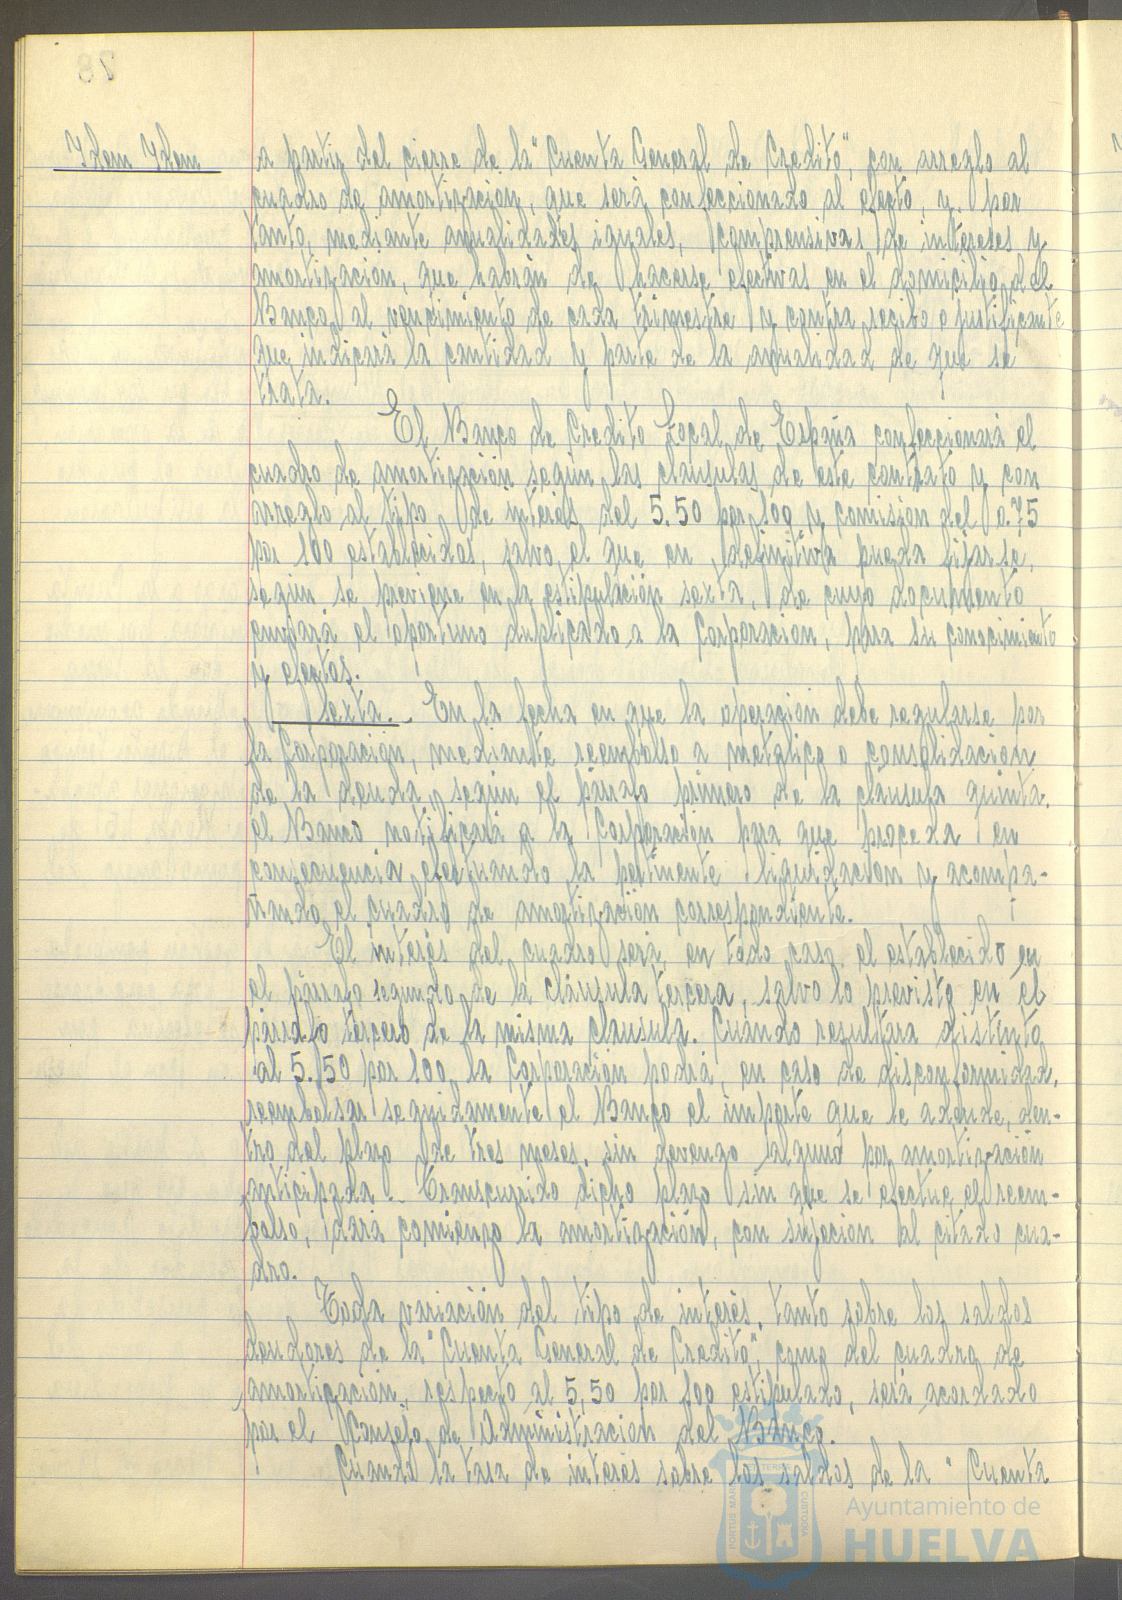 Idem Idem
a partir del cierre de la "Cuenta General de Crédito", con arreglo al
cuadro de amortización, que será confeccionado al efecto, y por
tanto, mediante anualidades iguales, comprensivas de intereses y
amortización, que habrán de hacerse efectivas en el domicilio del
Banco, al vencimiento de cada trimestre y contra recibo o justificante
que indicará la cantidad y parte de la anualidad de que se
trata.
El Banco de Crédito Local de España confeccionará el
cuadro de amortización según las cláusulas de este contrato y con
arreglo al tipo de interés del 5.50 por 100 y comisión del 0.75
por 100 establecidos, salvo el que en definitiva pueda fijarse,
según se previene en la estipulación sexta, de cuyo documento
enviará el oportuno duplicado a la Corporación, para su conocimiento
y efectos.
Sexta.- En la fecha en que la operación debe regularse por
la Corporación, mediante reembolso a metálico o consolidación
de la deuda, según el párrafo primero de la cláusula quinta,
el Banco notificará a la Corporación para que proceda en
consecuencia efectuando la pertinente liquidación y acompa-
ñando el cuadro de amortización correspondiente.
El interés del cuadro será, en todo caso, el establecido en
el párrafo segundo de la cláusula tercera, salvo lo previsto en el
párrafo tercero de la misma cláusula. Cuando resultara distinto
al 5.50 por 100, la Corporación podrá, en caso de disconformidad,
reembolsar seguidamente el Banco el importe que le adeude, den-
tro del plazo de tres meses, sin devengo alguno por amortización
anticipada.- Transcurrido dicho plazo sin que se efectue el reem-
bolso, dará comienzo la amortización, con sujeción al citado cua-
dro.
Toda variación del tipo de interés, tanto sobre los saldos
deudores de la "Cuenta General de Crédito", como del cuadro de
amortización, respecto al 5,50 por 100 estipulado, será acordado
por el Consejo de Administración del Banco.
Cuando la tasa de interés sobre los saldos de la "Cuenta
PORTUS MARIS ET TERRAE CUSTODIA
Ayuntamiento de
HUELVA